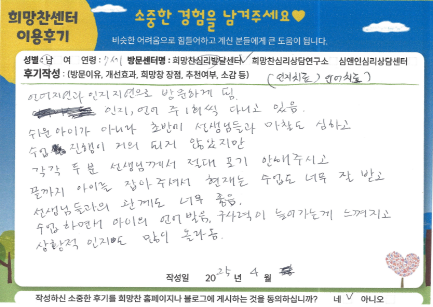 희망찬센터
이용후기
소중한 경험을 남겨주세요♥
비슷한 어려움으로 힘들어하고 계신 분들에게 큰 도움이 됩니다.
성별 : 남 여 연령 : 7세 방문센터명 : 희망찬심리발달센터 희망찬심리상담연구소 심앤인심리상담센터
후기작성 : (방문이유, 개선효과, 희망찬 장점, 추천여부, 소감 등) (인지치료, 언어치료)
언어지연과 인지지연으로 방문하게 됨.
인지, 언어 주 1회씩 다니고 있음.
쉬운 아이가 아니라 초반에 선생님들과 마찰도 심하고
수업 진행이 거의 되지 않았지만
각각 두분 선생님께서 절대 포기 안해주시고
끝까지 아이를 잡아주셔서 현재는 수업도 너무 잘 받고
선생님들과의 관계도 너무 좋음.
수업하면서 아이의 언어발음, 구사력이 늘어가는게 느껴지고
상황적 인지도 많이 올라옴.
작성일 2025년 4월
작성하신 소중한 후기를 희망찬 홈페이지나 블로그에 게시하는 것을 동의하십니까? 네 ✓ 아니오